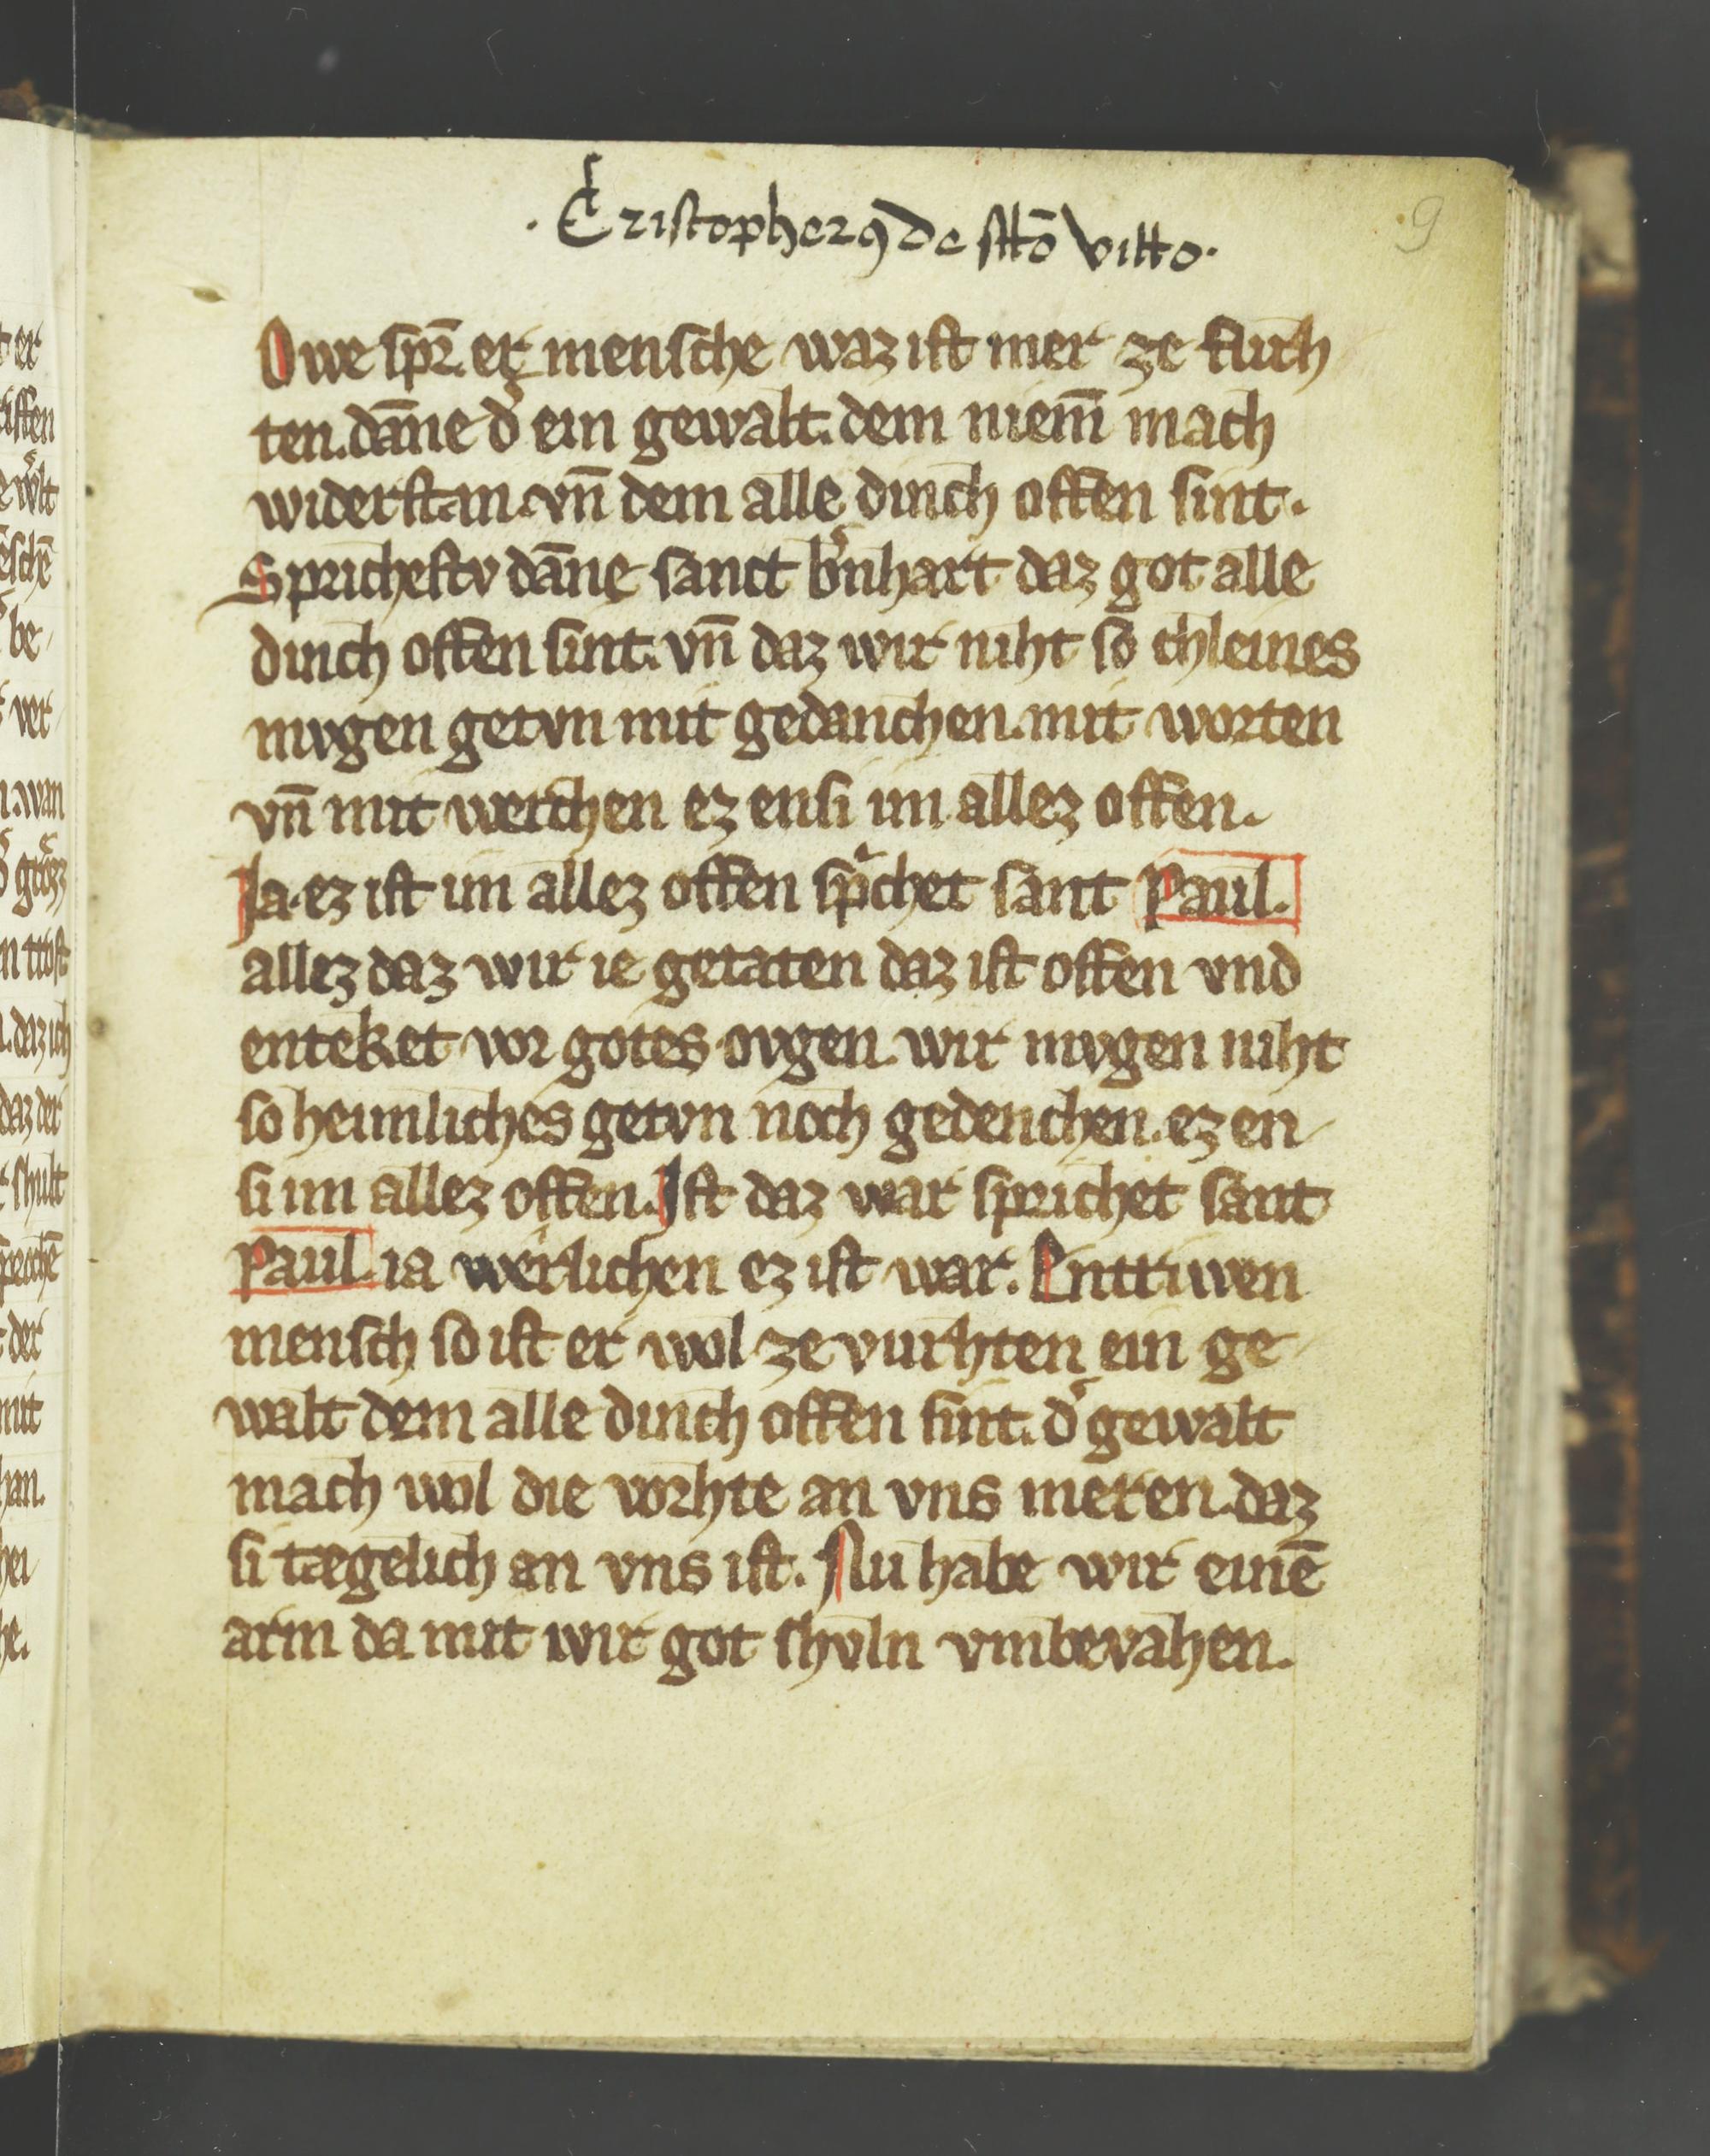 . Cristopherꝯ de sctō vitto .
9
Owe spr̄. er mensche waz ist mer ze furh
ten. dāne d͛ ein gewalt. dem niem̄ mach
widerstan. vn̄ dem alle dinch offen sint.
Sprichestv dāne sanct b͛nhart daz got alle
dinch offen sint. vn̄ daz wir niht so chleines
mvgen getvn mit gedanchen. mit worten
vn̄ mit werchen ez ensi im allez offen.
Ja. ez ist im allez offen spͥchet sant Paul.
allez daz wir ie getaten daz ist offen vnd
enteket vor gotes ovgen. wir mvgen niht
so heimliches getvn noch gedenchen. ez en
si im allez offen. Ist daz war sprichet sant
Paul. ia werlichen ez ist war. Entriwen
mensch so ist er wol ze vurhten ein ge
walt dem alle dinch offen sint. d͛ gewalt
mach wol die vorhte an vns meren. daz
si tægelich an vns ist. Nu habe wir einē
arm da mit wir got shvln vmbevahen.